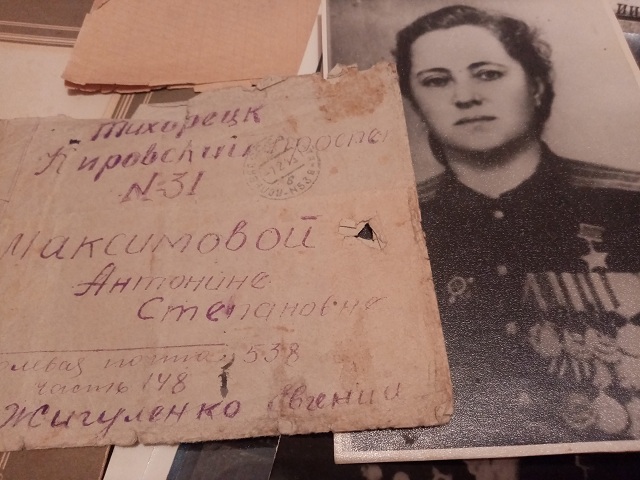 Тихорецк
Кировский
N-31
Максимовой
Антонине
Степановне
почта 538
часть 148
Жигуленко Евгении